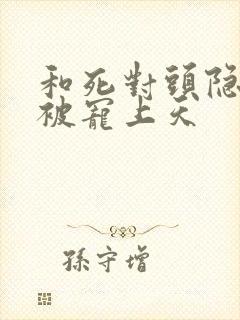 和死對頭隐
被寵上天
孫守增